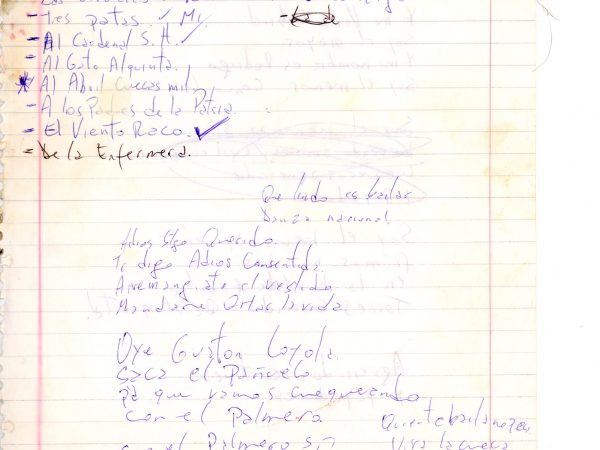 - Tres patas. ✓ Mi
- Al Cardenal S.H. ✓
- Al Gato Alquinta.
* Al Abril Cuecas mil.
- A los Padres de la Patria.
- El Viento Raco. ✓
- De la Enfermera.
Que lindo es bailar
Danza nacional
Adios Stgo Querido
Te digo Adios Consentida
Arremangate el vestido
Oye Guaton Loyola.
Saca el Pañuelo
pa que vamos cuequeando
con el Palmero
con el Palmero si
Viva la cueca